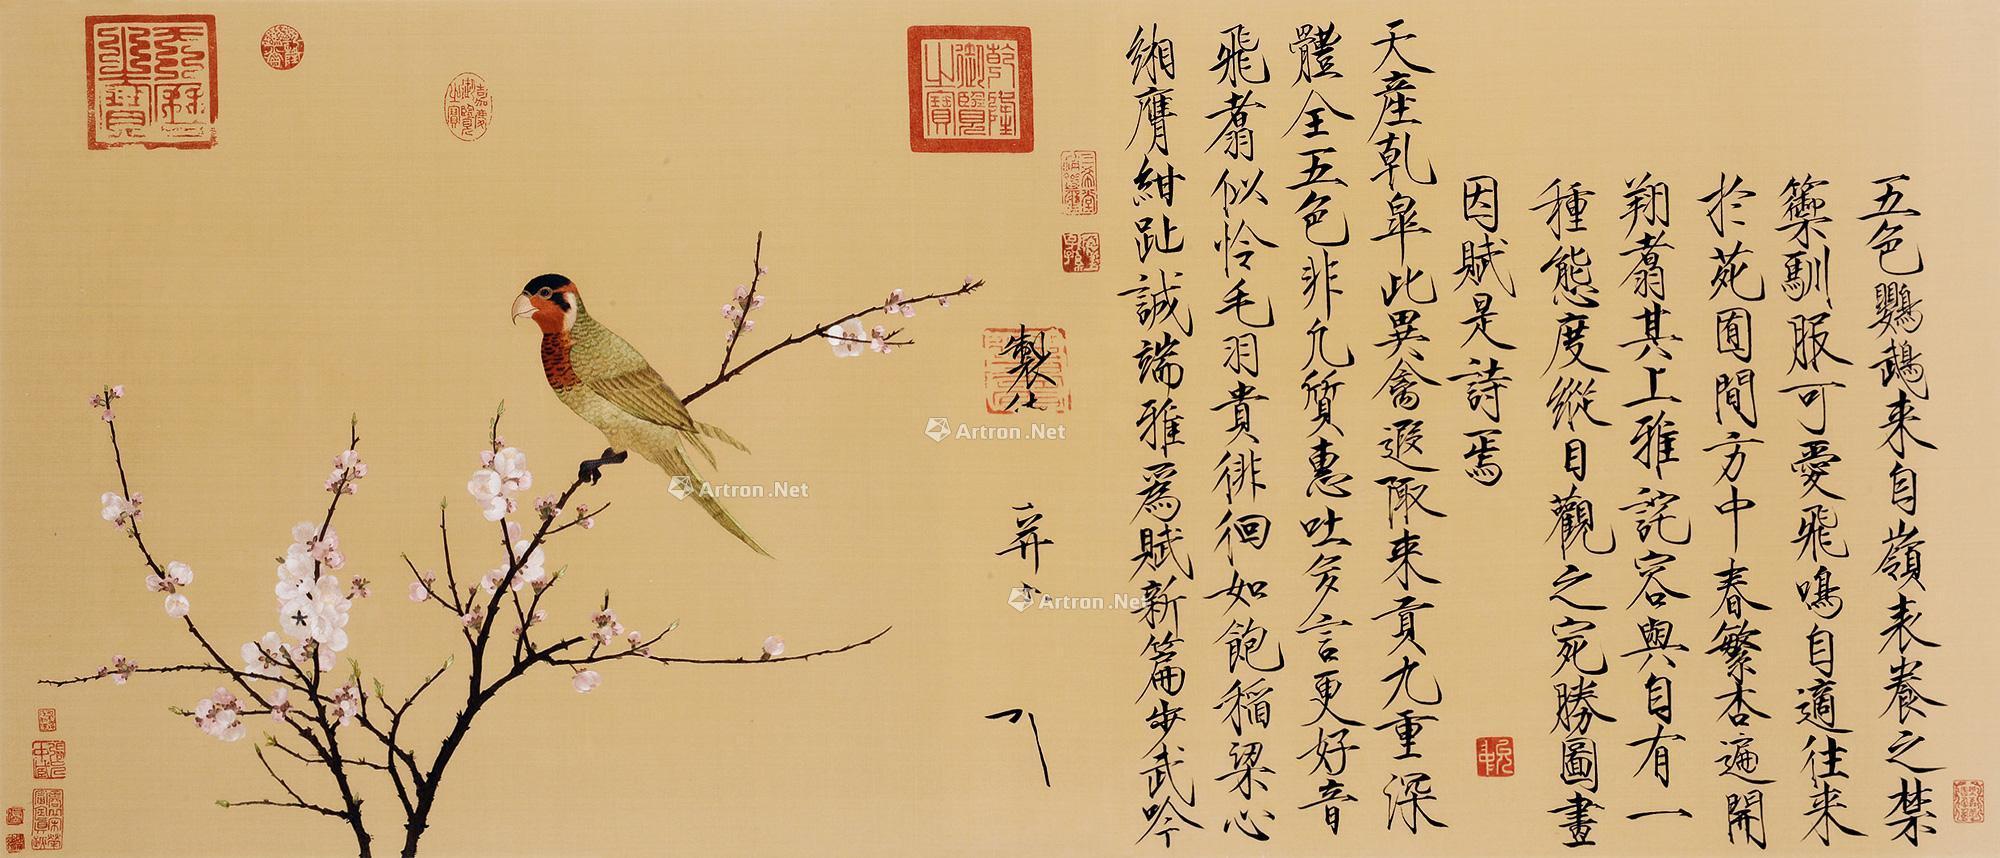 五色鸚鵡来自嶺表養之禁
籞馴服可愛飛鳴自適往来
於苑囿間方中春繁杏遍開
翔翥其上雅詫容與自有一
種態度縱目觀之宛勝圖畫
因賦是詩焉
天産乹皐此異禽遐陬来貢九重深
體全五色非凡質惠吐多言更好音
飛翥似怜毛羽貴徘徊如飽稲粱心
緗膺紺趾誠端雅爲賦新篇步武吟
製
并
乾隆御覽之寶
嘉慶御覽之寶
Artron.Net
Artron.Net
Artron.Net